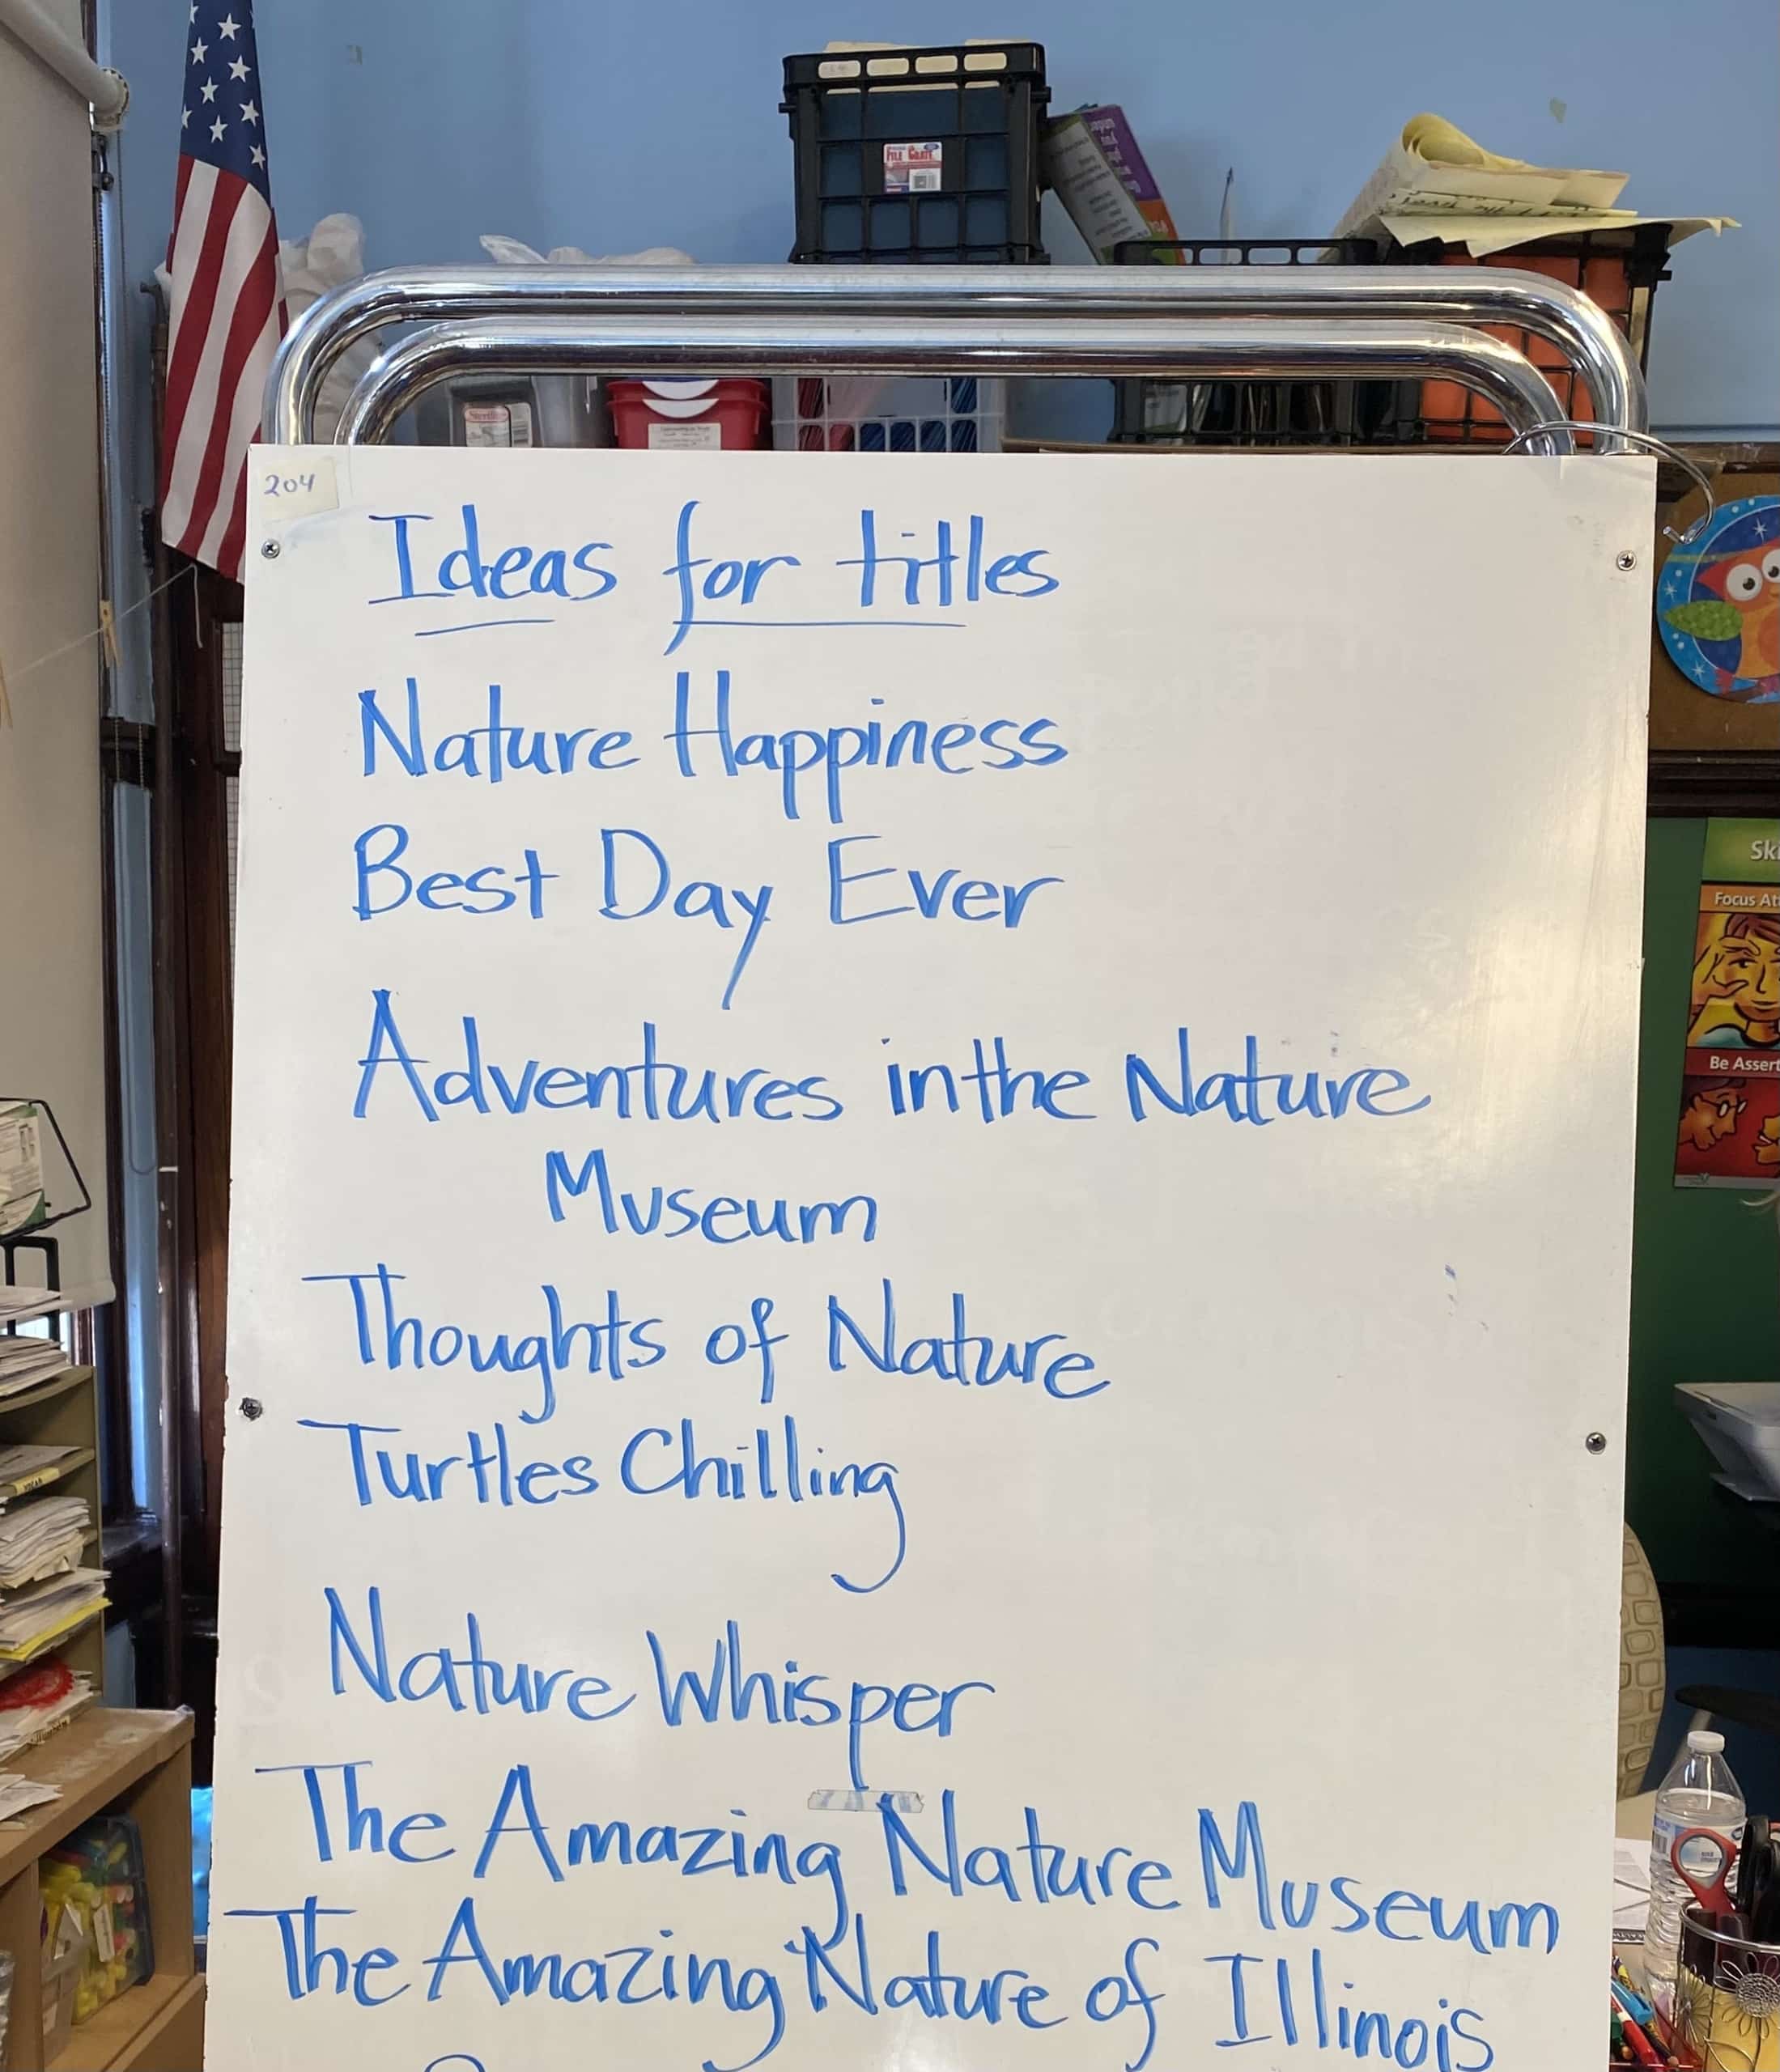 FILE CRATE
204
Ideas for titles
Nature Happiness
Best Day Ever
Adventures in the Nature
Museum
Thoughts of Nature
Turtles Chilling
Nature Whisper
The Amazing Nature Museum
The Amazing Nature of Illinois
Sterilite
Ski
Focus At
Be Assert